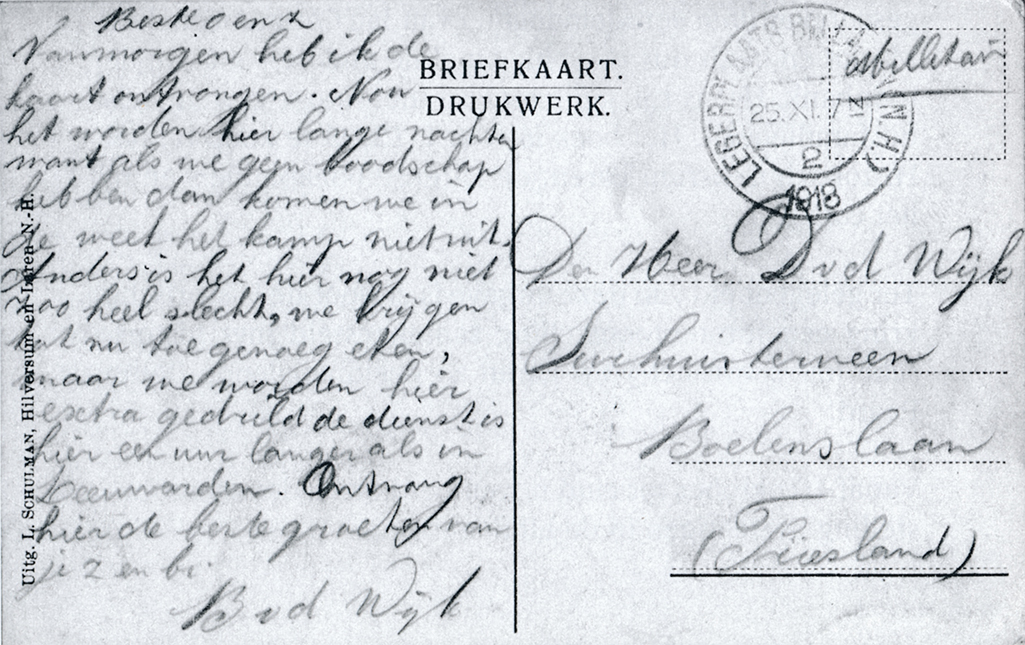 Beste o en z
Vanmorgen heb ik de
kaart ontvangen. Nou
het worden hier lange nachten
want als we geen boodschap
hebben dan komen we in
de week het kamp niet uit.
Anders is het hier nog niet
zoo heel slecht, we krijgen
tot nu toe genoeg eten,
maar we worden hier
extra gedrild de dienst is
hier een uur langer als in
Leeuwarden. Ontvang
hier de beste groeten van
je z en br.
B v d Wijk
BRIEFKAART.
DRUKWERK.
LEGERPLAATS B (N.H.)
25.XI. 7
2
1918
Militair
Den Heer D v d Wijk
Surhuisterveen
Boelenslaan
(Friesland)
Uitg. L. SCHULMAN, Hilversum en Laren N.-H.